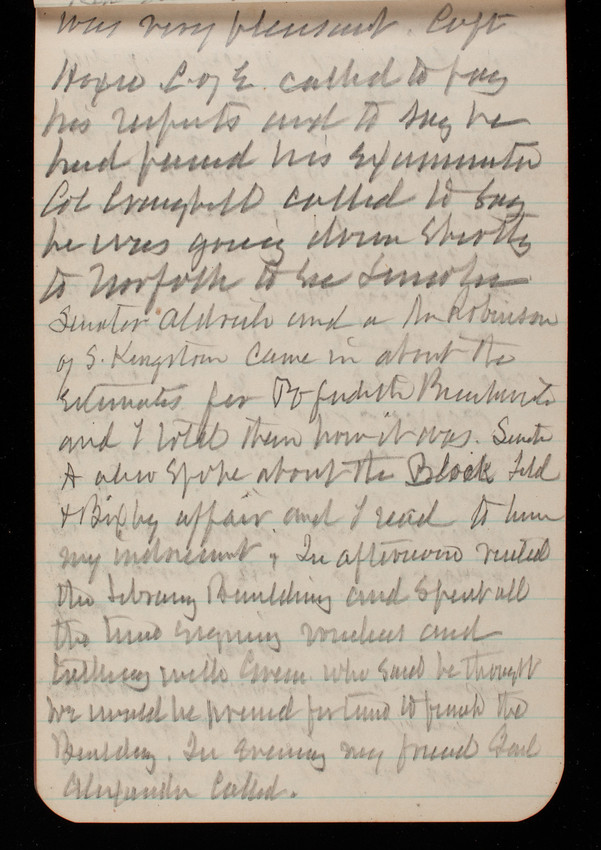 was very pleasant. Capt
C of E called to pay
his respects and to say he
had passed his examination
Col Craighill called to say
he was going down shortly
to Norfolk to see Lincoln
Senator Aldrich and a Mr Robinson
of S. Kingston came in about the
Estimates for Pt Judith Breakwater
and I told them how it was. Senator
A also spoke about the Block Isld
& Bixby affair and I read to him
my indorsement. In afternoon visited
the Library Building and spent all
the time signing vouchers and
talking with Green who said he thought
we would be pressed for time to finish the
Building. In Evening my friend
Alexander Called.